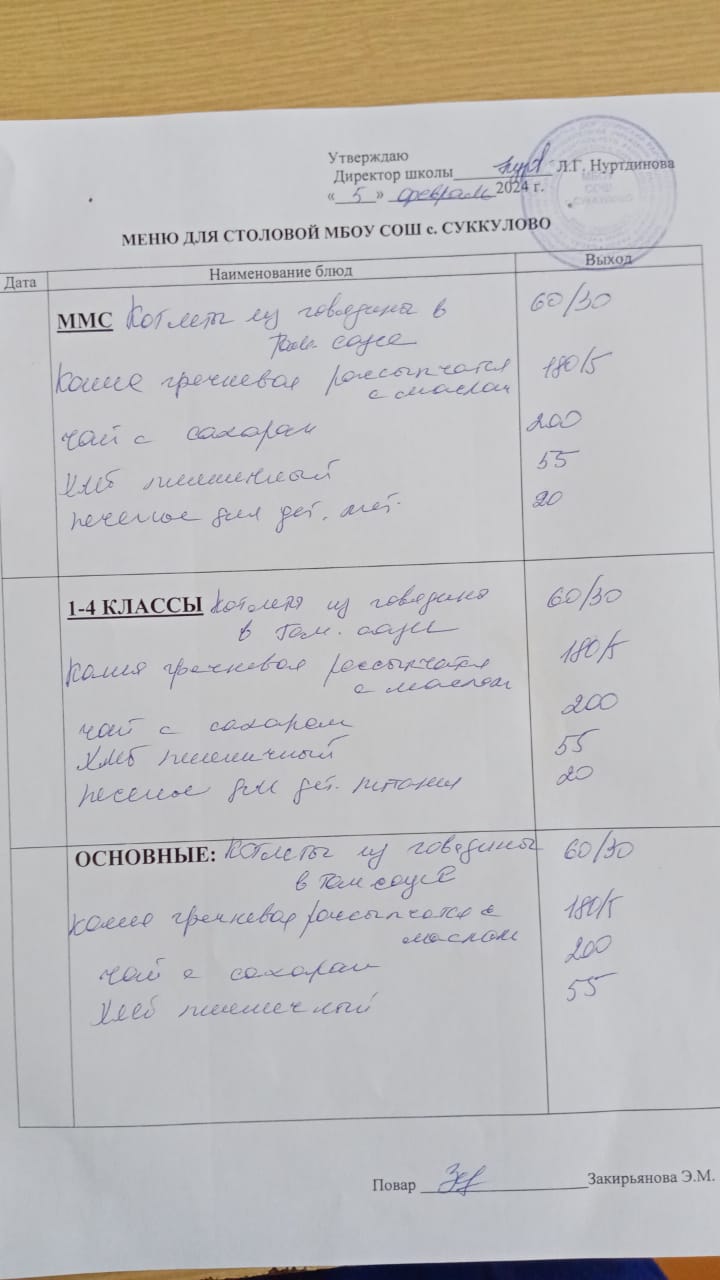 Утверждаю
Директор школы Л.Г. Нуртдинова
« 5 » февраль 2024 г.
МБОУ
СОШ
МЕНЮ ДЛЯ СТОЛОВОЙ МБОУ СОШ с. СУККУЛОВО
Дата Наименование блюд Выход
ММС Котлеты из говядины в 60/30
том. соусе
Каша гречневая рассыпчатая 180/5
с маслом
чай с сахаром 200
Хлеб пшеничный 55
печенье для дет. 20
1-4 КЛАССЫ Котлеты из говядины 60/30
в том. соусе
Каша гречневая рассыпчатая 180/5
с маслом
чай с сахаром 200
Хлеб пшеничный 55
печенье для дет. питания 20
ОСНОВНЫЕ: Котлеты из говядины 60/30
в том соусе
каша гречневая рассыпчатая с 180/5
маслом
чай с сахаром 200
Хлеб пшеничный 55
Повар Закирьянова Э.М.